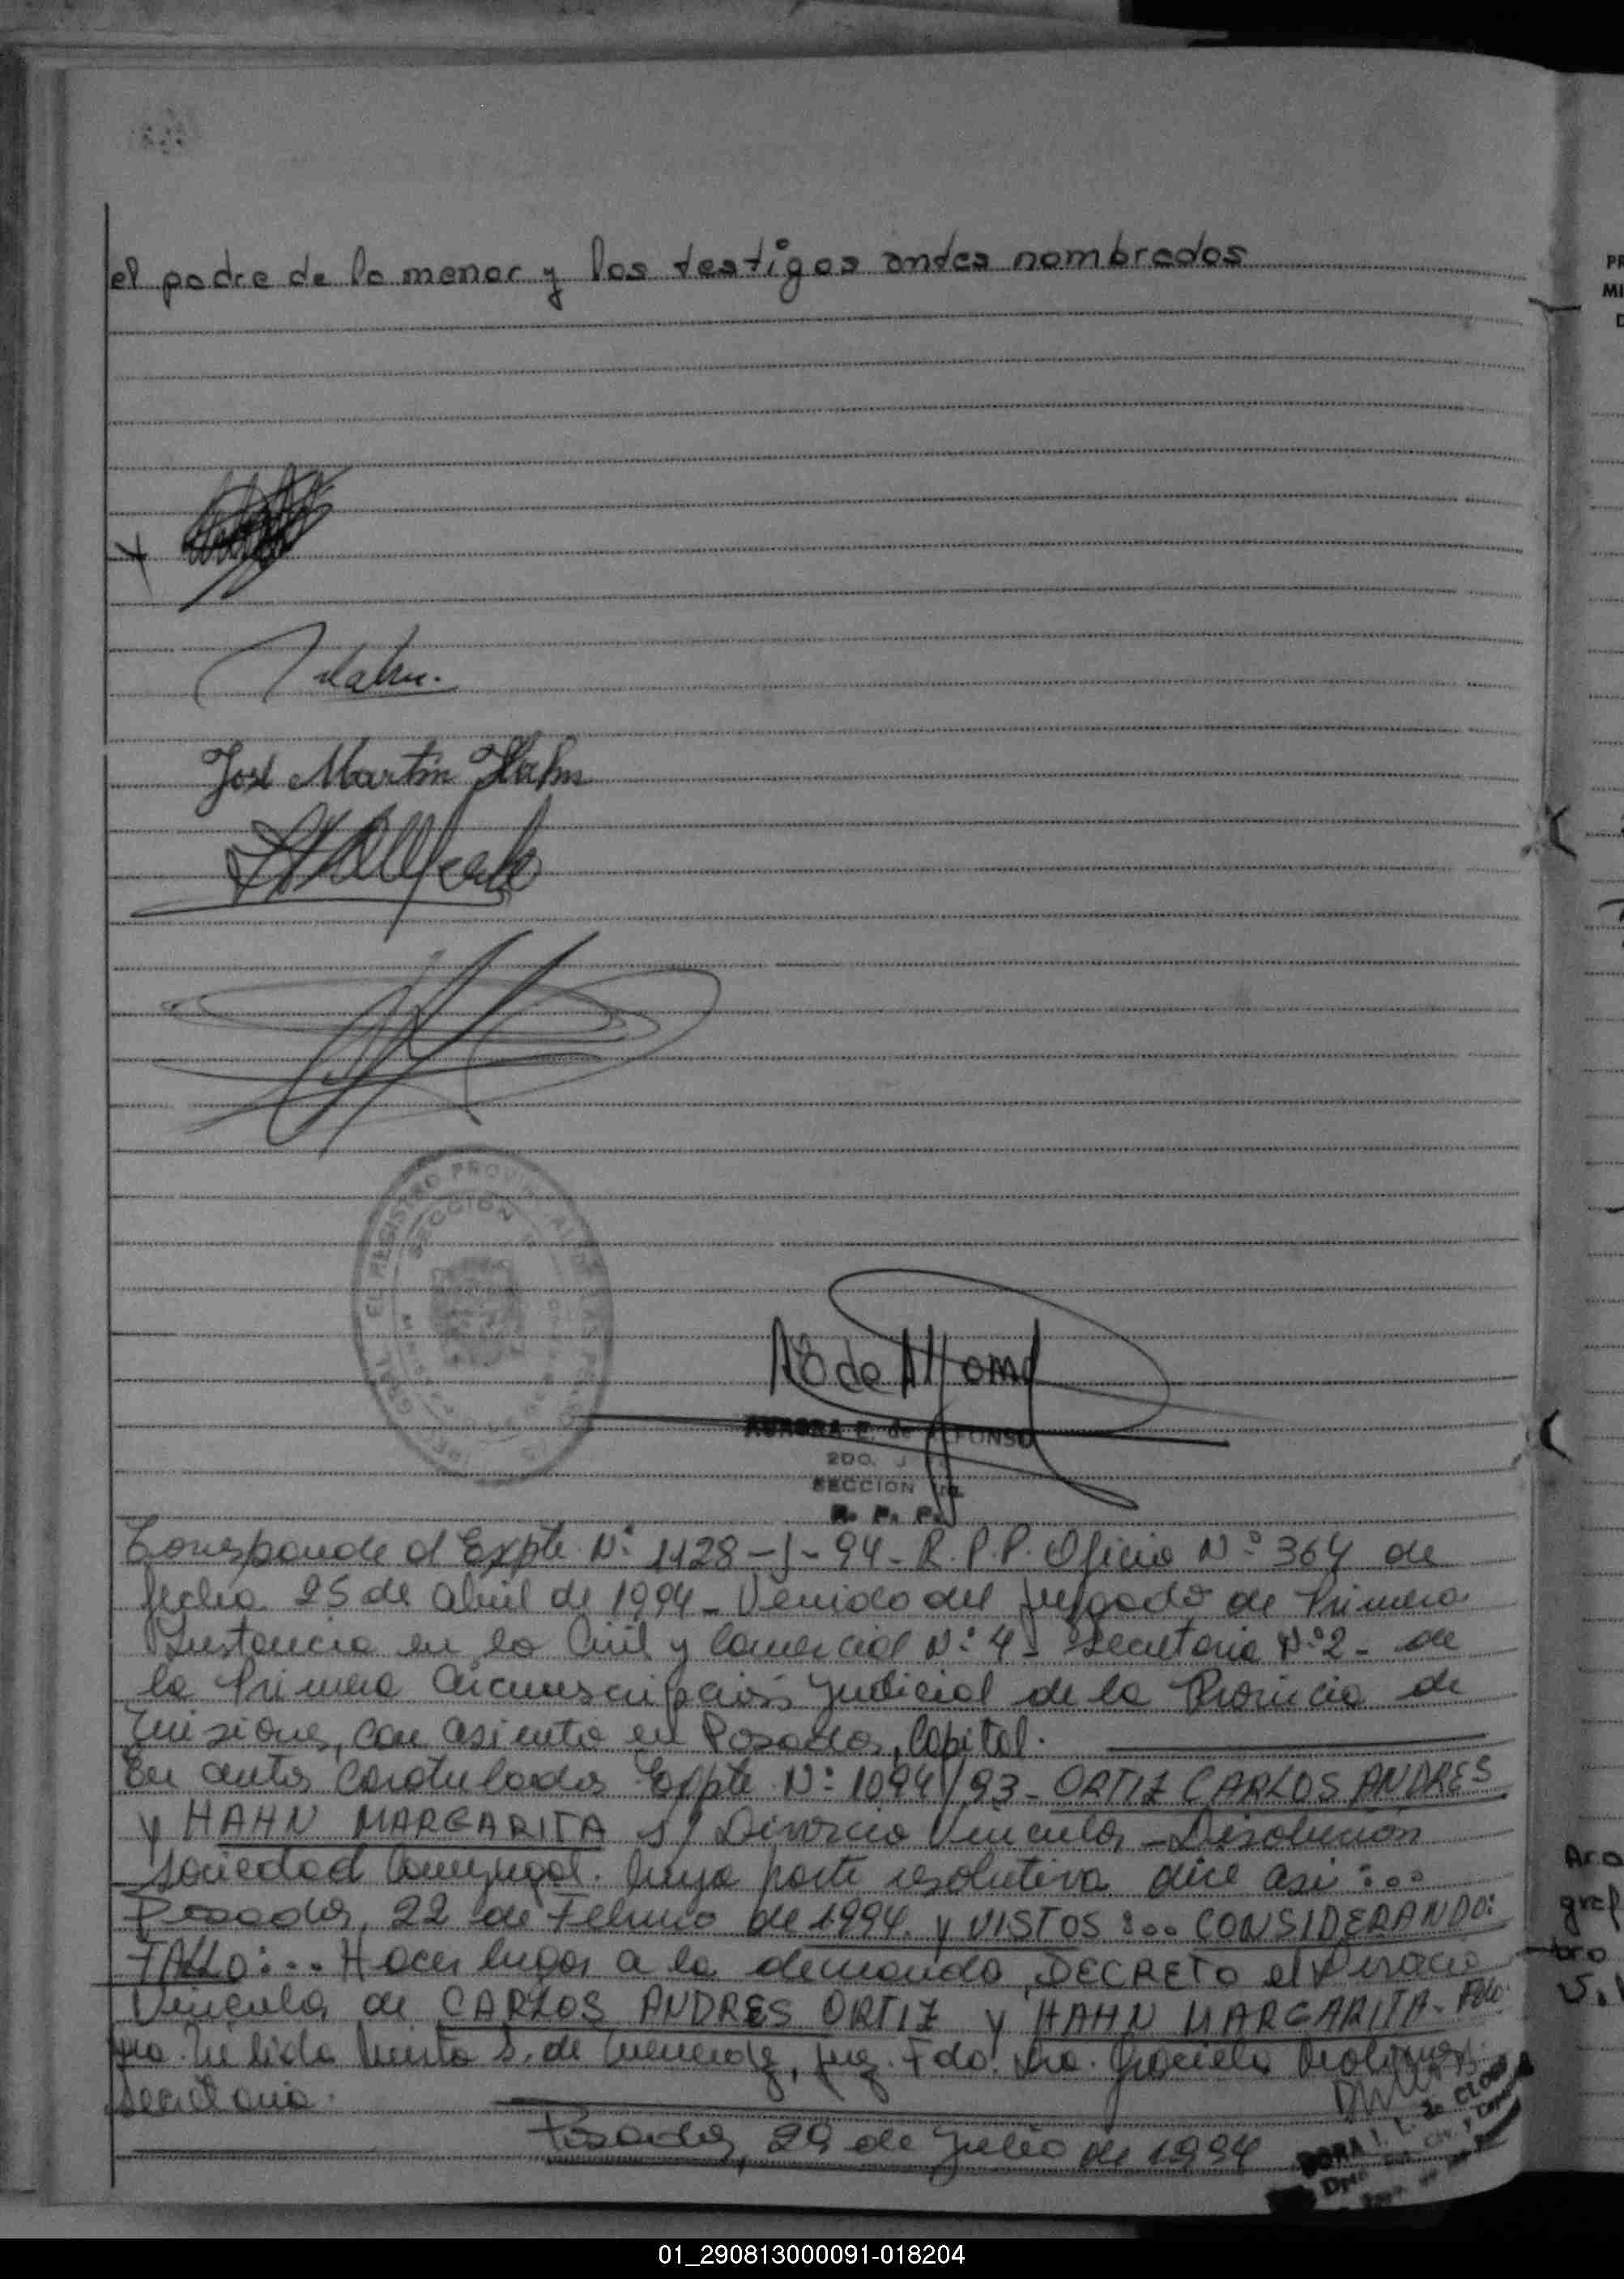 el padre de la menor y los testigos antes nombrados
Hahn.
José Martin Hahn
EL REGISTRO PROVIN
SECCION
A de Alfonso
AURORA E. de ALFONSO
2DO. J
SECCION 1ra.
R. P. P.
Corresponde al Expte. Nº 1128-J-94-R.P.P. Oficio Nº 364 de
fecha 25 de abril de 1994- Venido del Juzgado de Primera
Instancia en lo Civil y Comercial Nº 4- Secretaria Nº 2- de
la Primera Circunscripción Judicial de la Provincia de
Misiones, con asiento en Posadas, Capital.
En autos caratulados Expte. Nº 1094/93- ORTIZ CARLOS ANDRES
y HAHN MARGARITA s/ Divorcio Vincular - Disolución
Sociedad Conyugal. Cuya parte resolutiva dice asi:...
Posadas, 22 de Febrero de 1994. y VISTOS:... CONSIDERANDO:
FALLO:... Hacer lugar a la demanda, DECRETO el Divorcio
Vincular de CARLOS ANDRES ORTIZ y HAHN MARGARITA- Fdo.
Dra. S. de Juez. Fdo. Dra. Graciela
Secretaria.
Posadas, 29 de Julio de 1994
DORA I. L. de
Dpto.
PR
MI
D
Aco
graf
bro
S.
01_290813000091-018204